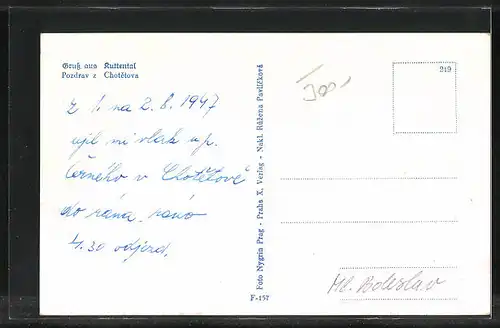 Gruß aus Kuttental
Pozdrav z Chotětova
z 1. na 2. 8. 1947
ujel mi vlak u p.
Černého v Chotětově
do rána. ráno
4.30 odjezd.
Foto Nygrin Prag - Praha X. Verlag - Nakl. Růžena Pavlíčková
F-157
300-
219
Ml. Boleslav